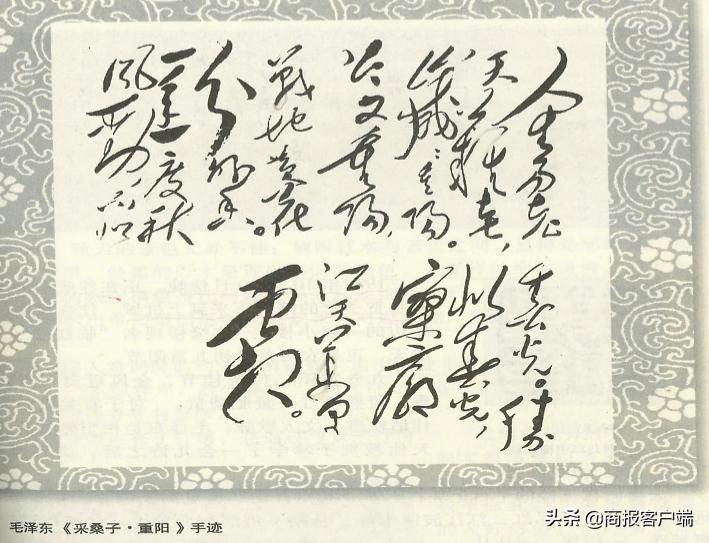 人生易老
天難老，
歲歲重陽。
今又重陽，
戰地黃花
分外香。
一年一度秋
風勁，不似
春光。勝
似春光，
寥廓
江天萬里
霜。
毛泽东《采桑子·重阳》手迹
头条 @商报客户端